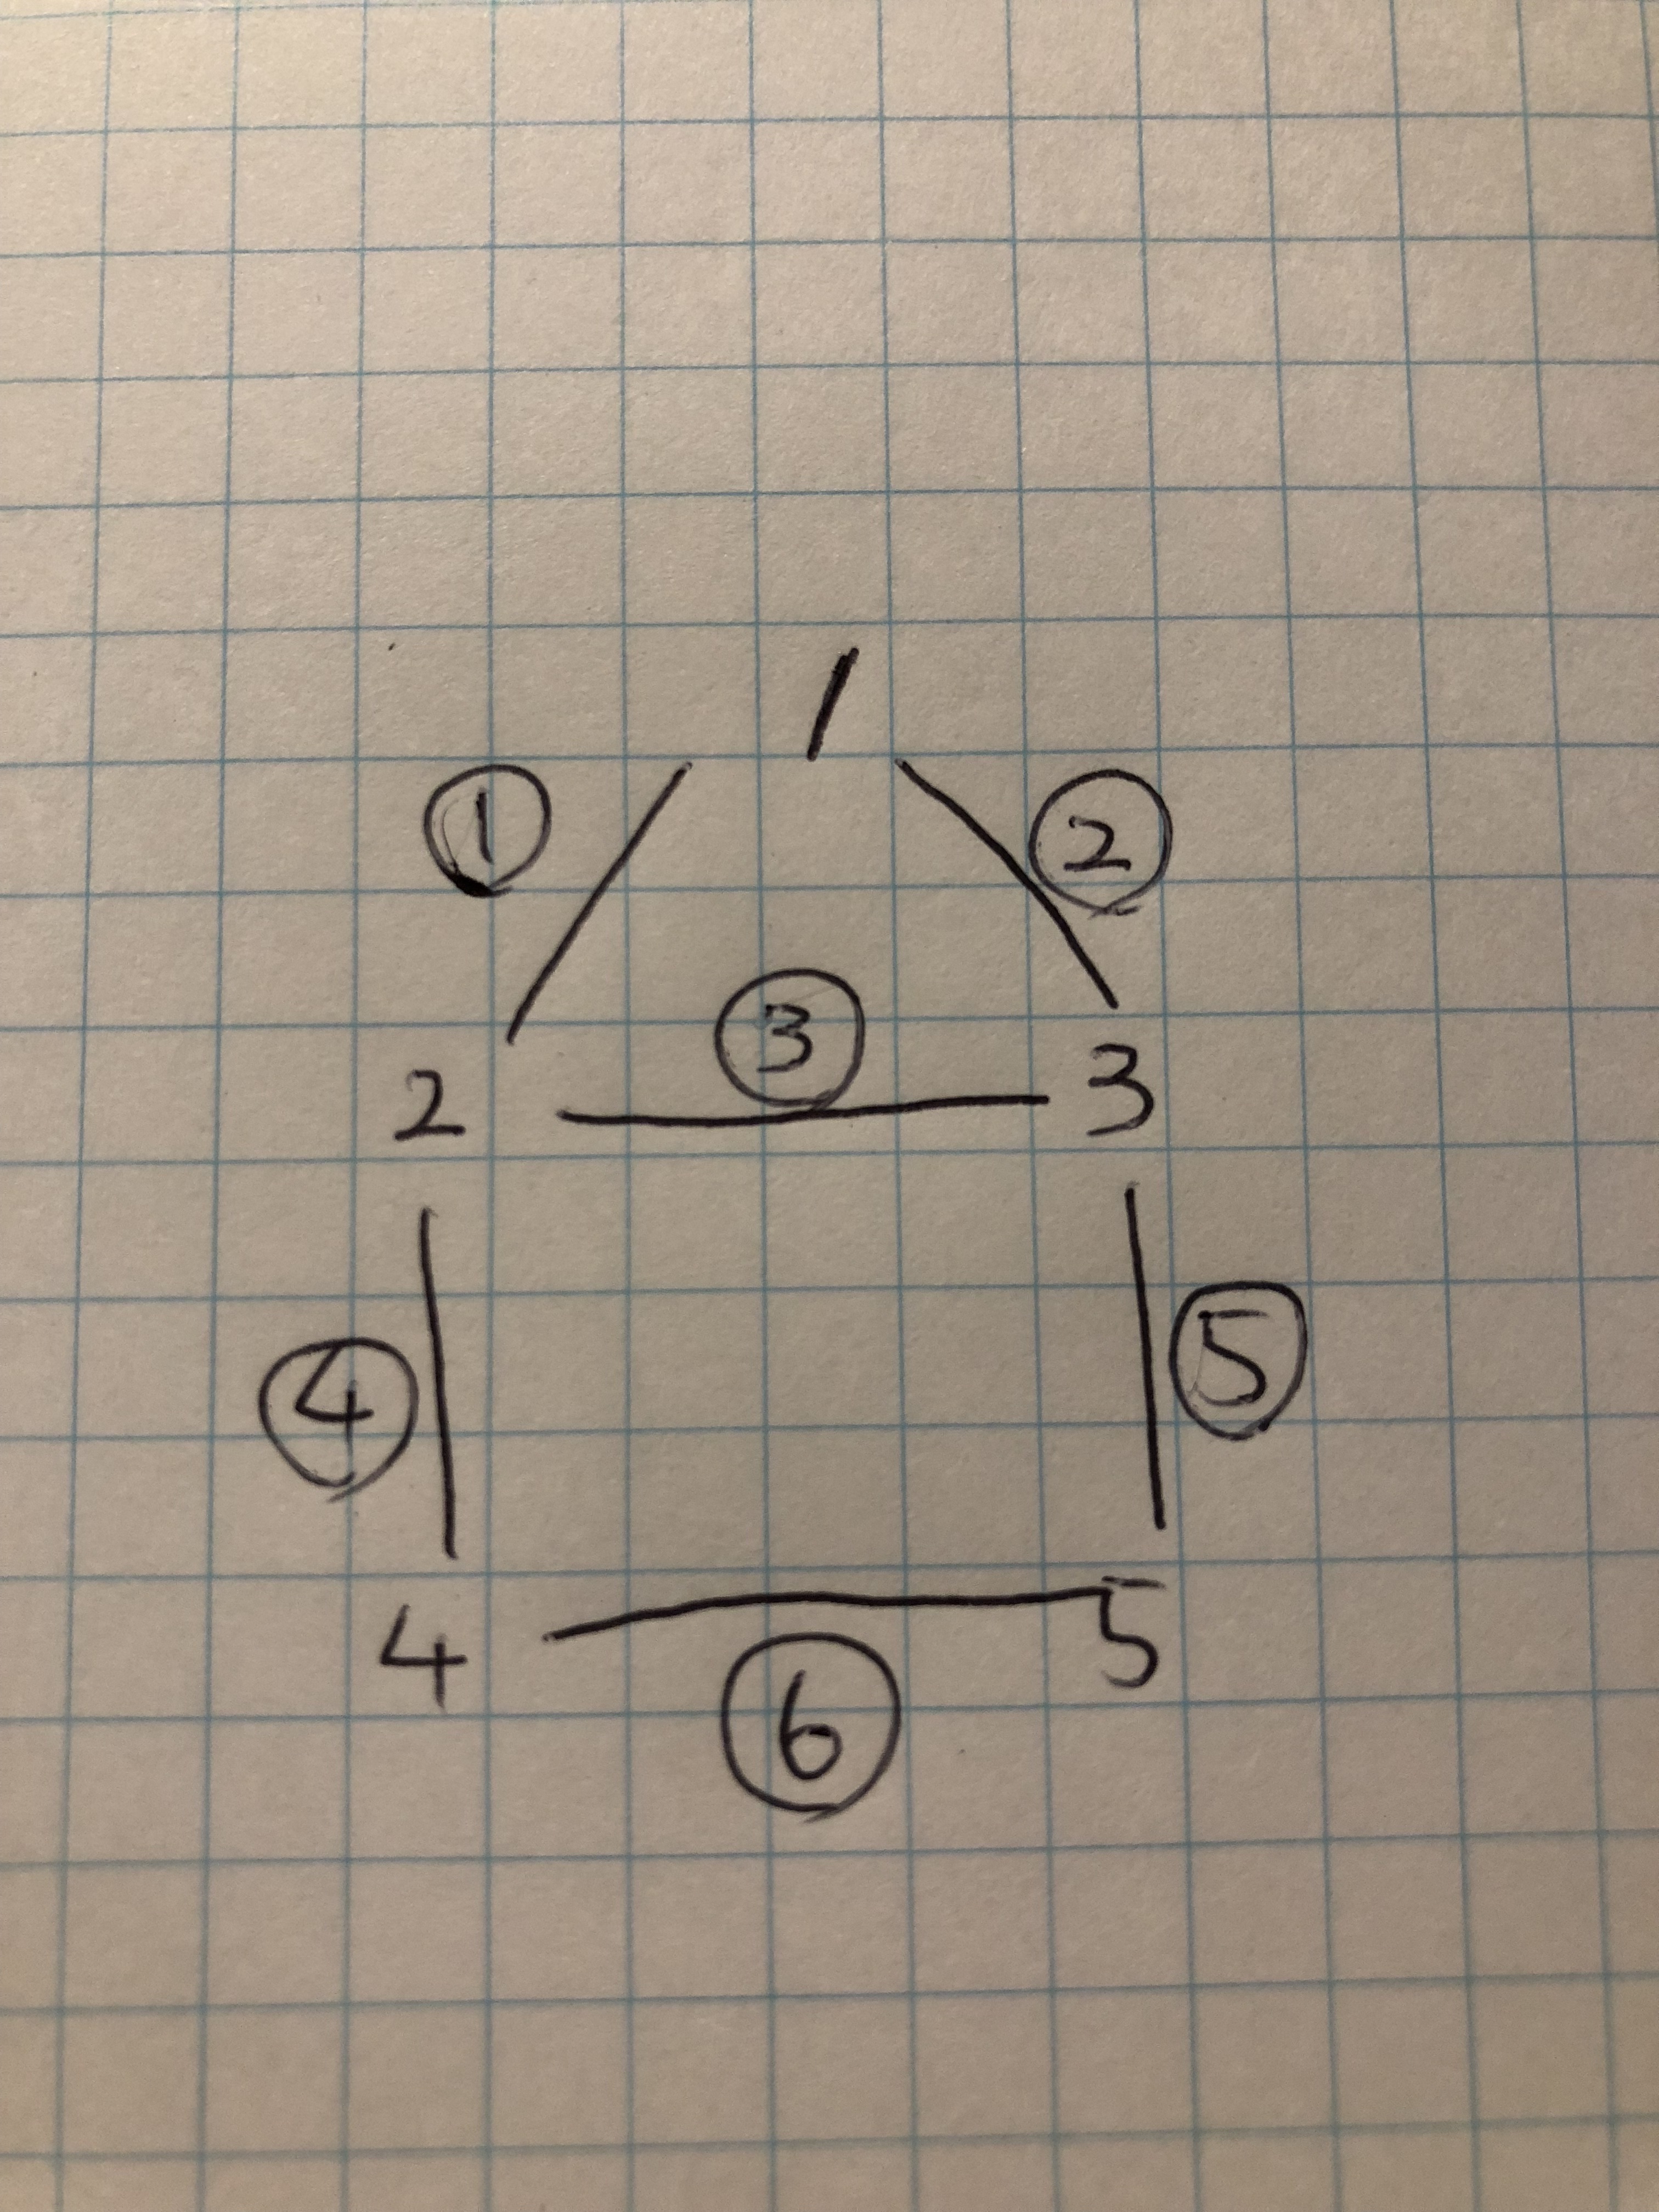 1
① ②
③
2 3
④ ⑤
4 5
⑥